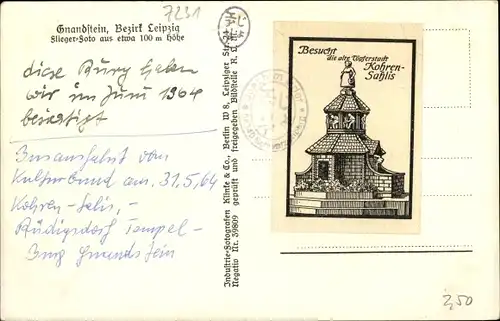 7231
Gnandstein, Bezirk Leipzig
Flieger-Foto aus etwa 100 m Höhe
diese Burg haben
wir im Juni 1964
besichtigt
Busausfahrt vom
Kulturbund am 31.5.64
Kohren-Salis,-
Rüdigsdorf Tempel-
Burg Gnandstein
Industrie-Fotografen Klinke & Co., Berlin W 8, Leipziger Str.
Negativ Nr. 39809 geprüft und freigegeben
Besucht
die alte Töpferstadt
Kohren-
Sahlis
2,50